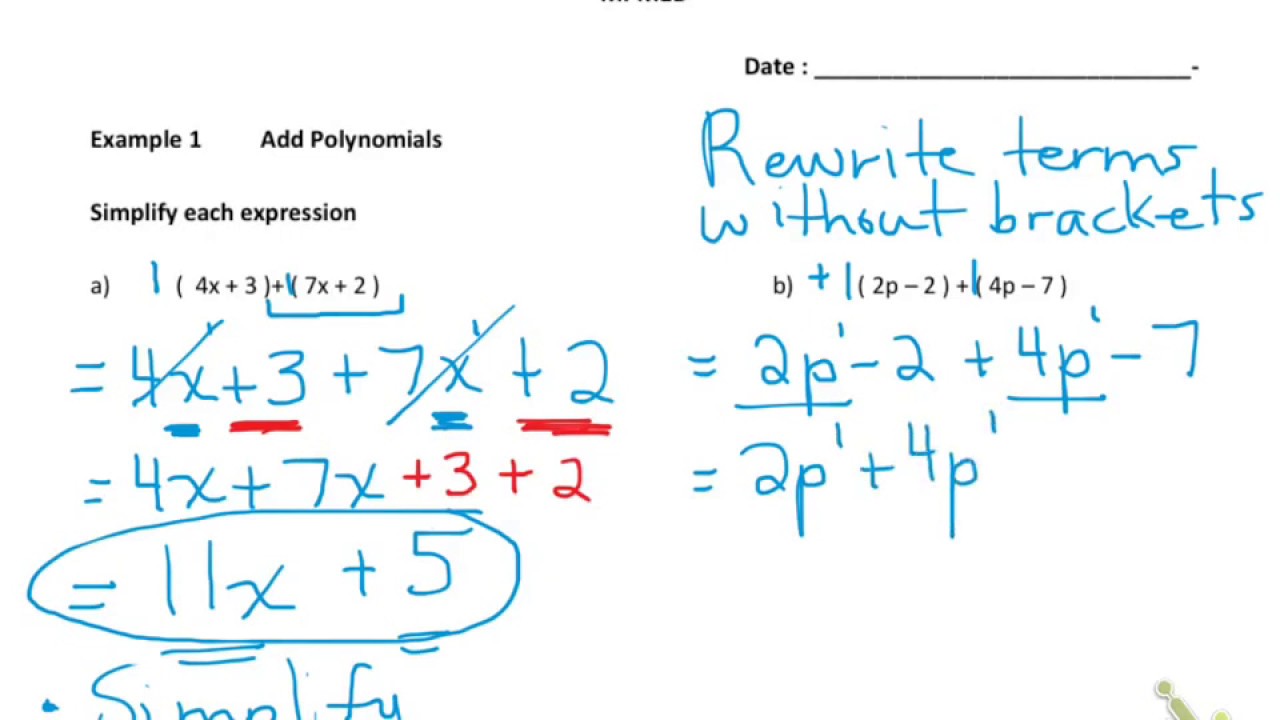 Date : ______________________________-
Example 1 Add Polynomials
Rewrite terms
without brackets
Simplify each expression
a) 1 ( 4x + 3 )+1( 7x + 2 )
= 4x + 3 + 7x¹ + 2
= 4x + 7x + 3 + 2
= 11x + 5
• Simplify
b) + 1 ( 2p – 2 ) +1( 4p – 7 )
= 2p¹ - 2 + 4p¹ - 7
= 2p¹ + 4p¹